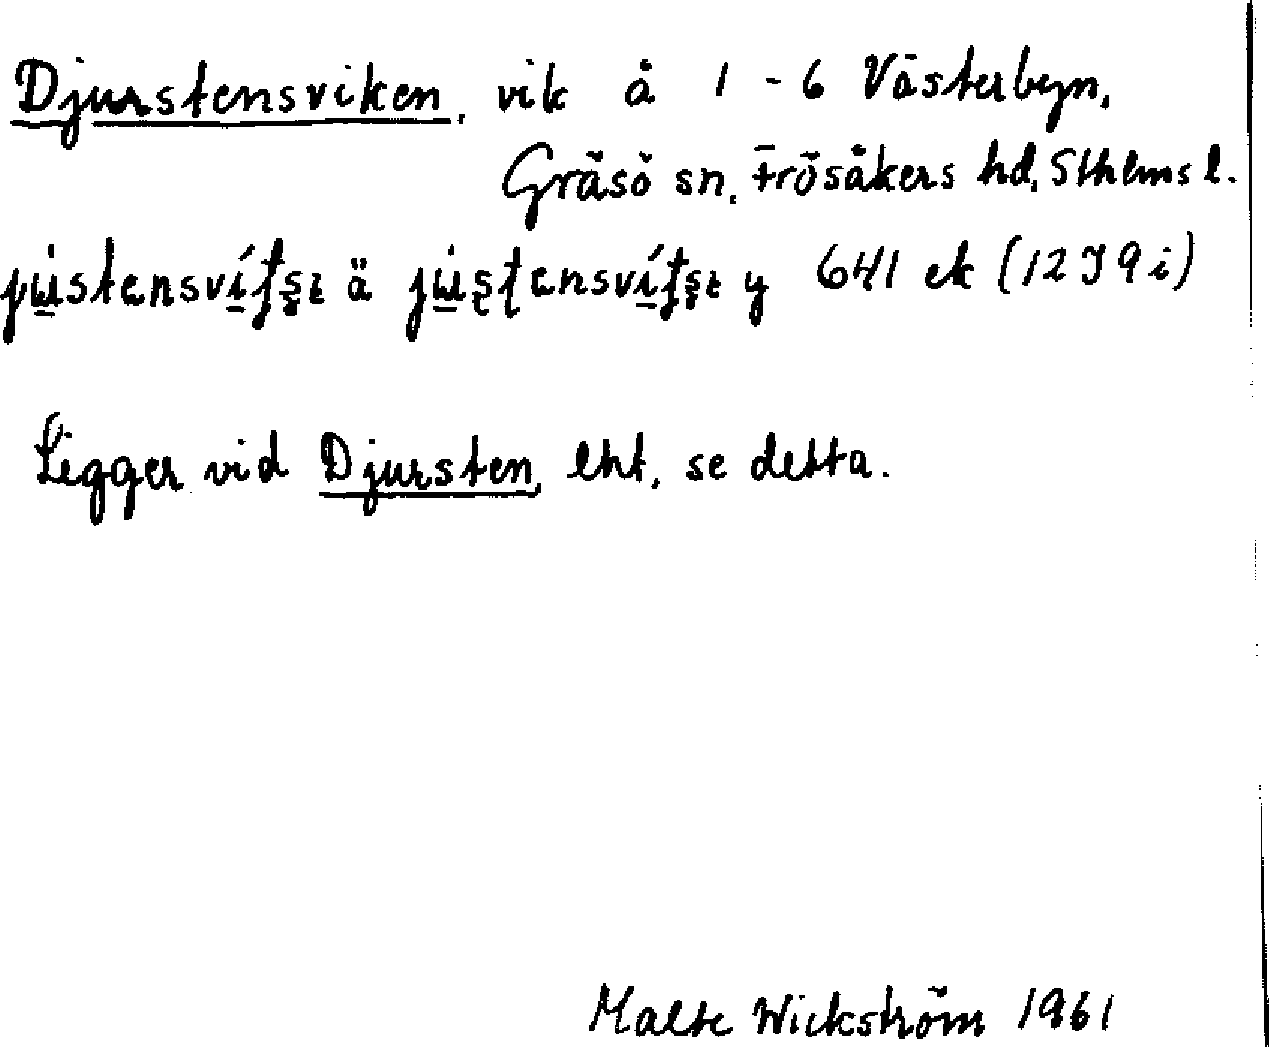 Djurstensviken, vik å 1-6 Västerbyn,
Gräsö sn, Frösåkers hd, Sthlms l.
ä y 641 ek (12 I 9 i)
Ligger vid Djursten, lht, se detta.
Malte Wickström 1961